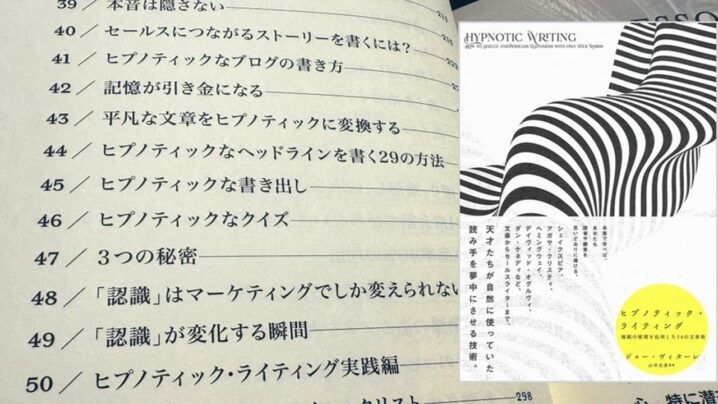 39 / 本音は隠さない
40 / セールスにつながるストーリーを書くには?
41 / ヒプノティックなブログの書き方
42 / 記憶が引き金になる
43 / 平凡な文章をヒプノティックに変換する
44 / ヒプノティックなヘッドラインを書く29の方法
45 / ヒプノティックな書き出し
46 / ヒプノティックなクイズ
47 / 3つの秘密
48 / 「認識」はマーケティングでしか変えられない
49 / 「認識」が変化する瞬間
50 / ヒプノティック・ライティング実践編
298
HYPNOTIC WRITING
HOW TO SEDUCE AND PERSUADE CUSTOMERS WITH ONLY YOUR WORDS
本書で学べば、
あなたも
読者や顧客を
思いどおりに導ける。
シェイクスピア、
アガサ・クリスティ、
ヘミングウェイ、
デイヴィッド・オグルヴィ、
ダン・ケネディなど、
文豪からセールスライターまで、
天才たちが自然に使っていた
読み手を夢中にさせる技術。
ヒプノティック・
ライティング
催眠の原理を応用した54の文章術
ジョー・ヴィターレ